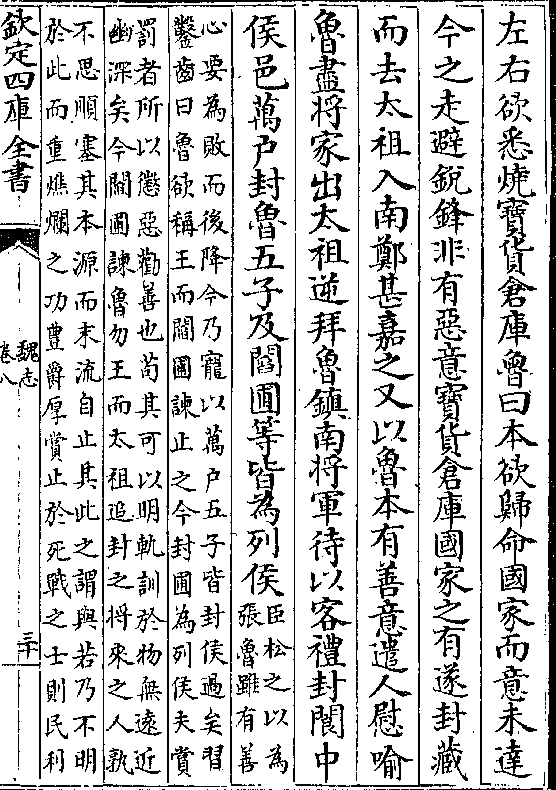 左右欲悉燒寳貨倉庫魯曰本欲歸命國家而意未達
今之走避鋭鋒非有惡意寳貨倉庫國家之有遂封藏
而去太祖入南鄭甚嘉之又以魯本有善意遣人慰喻
魯盡將家出太祖逆拜魯鎮南將軍待以客禮封閬中
侯邑萬户封魯五子及閻圃等皆為列侯
臣松之以為
張魯雖有善
心要為敗而後降今乃寵以萬户五子皆封侯過矣習
鑿齒曰魯欲稱王而閻圃諫止之今封圃為列侯夫賞
罰者所以懲惡勸善也苟其可以明軌訓於物無遠近
幽深矣今閻圃諫魯勿王而太祖追封之將來之人孰
不思順塞其本源而末流自止其此之謂與若乃不明
於此而重燋爛之功豊爵厚賞止於死戰之士則民利
欽定四庫全書
魏志
卷八
三十